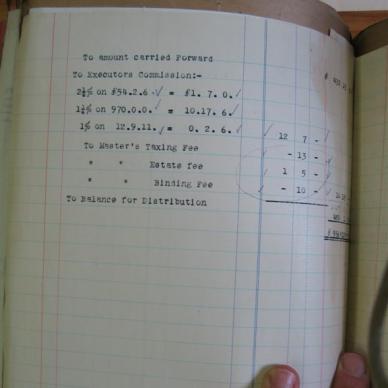 To amount carried Forward
To Executors Commission:-
2½% on £54.2.6 = £1. 7. 0.
1½% on 970.0.0. = 10.17. 6.
1% on 12.9.11. = 0. 2. 6. 12 7 -
To Master's Taxing Fee - 13 -
" " Estate fee 1 5 -
" " Binding Fee - 10 -
To Balance for Distribution